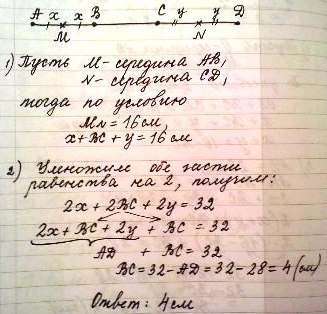 A x x B C y y D
M N
1) Пусть M- середина AB,
N- середина CD,
тогда по условию
MN = 16 см,
x + BC + y = 16 см
2) Умножим обе части
равенства на 2, получим:
2x + 2BC + 2y = 32
2x + BC + 2y + BC = 32
AD + BC = 32
BC = 32 - AD = 32 - 28 = 4 (см)
Ответ: 4 см